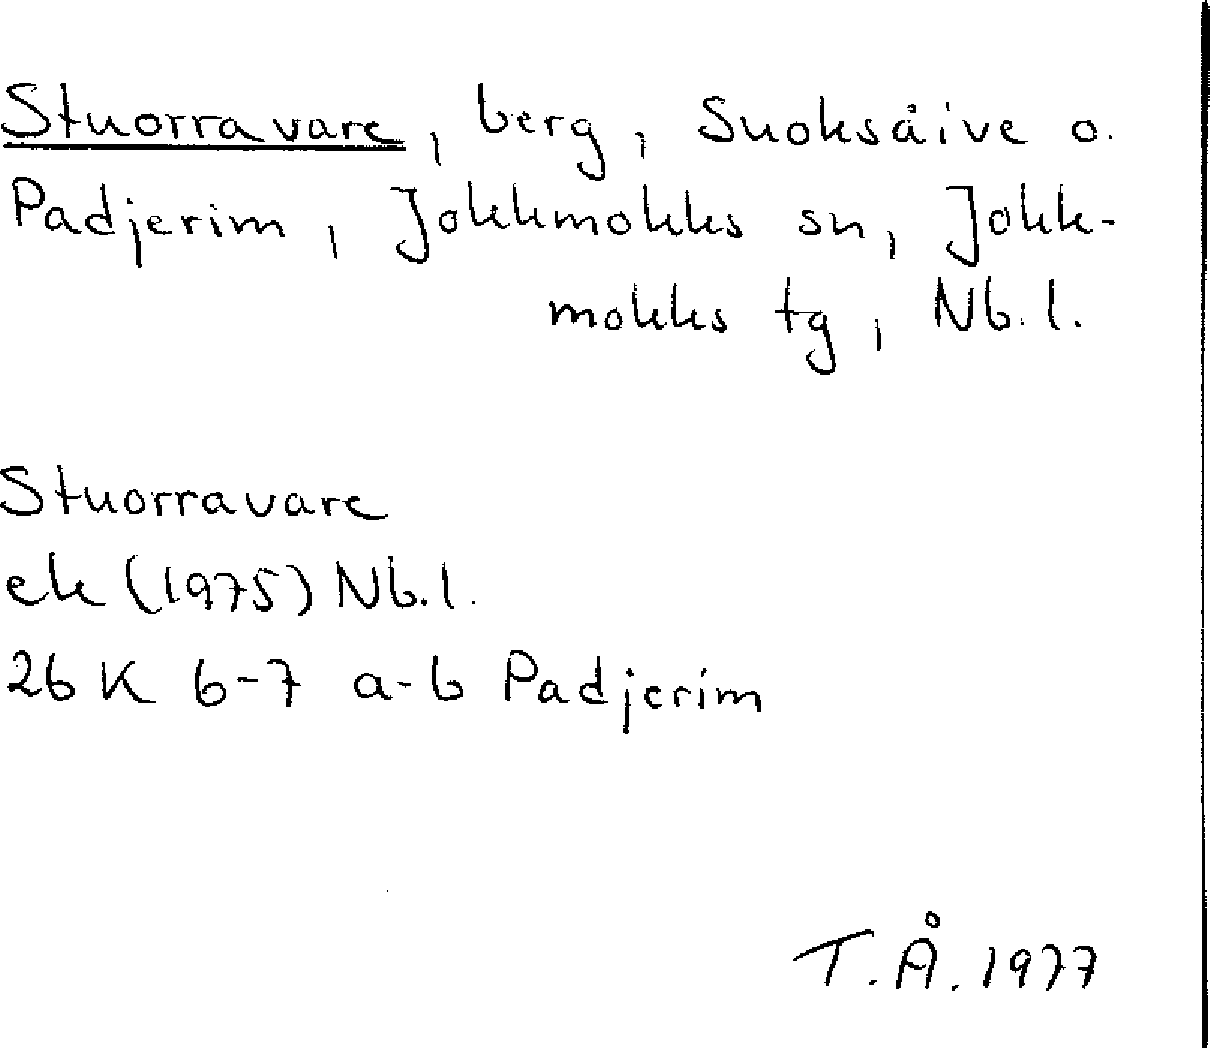 Stuorravare, berg, Suoksåive o.
Padjerim, Jokkmokks sn, Jokk-
mokks tg, Nb.l.
Stuorravare
ek (1975) Nb.l.
26 K 6-7 a-b Padjerim
T.Å. 1977